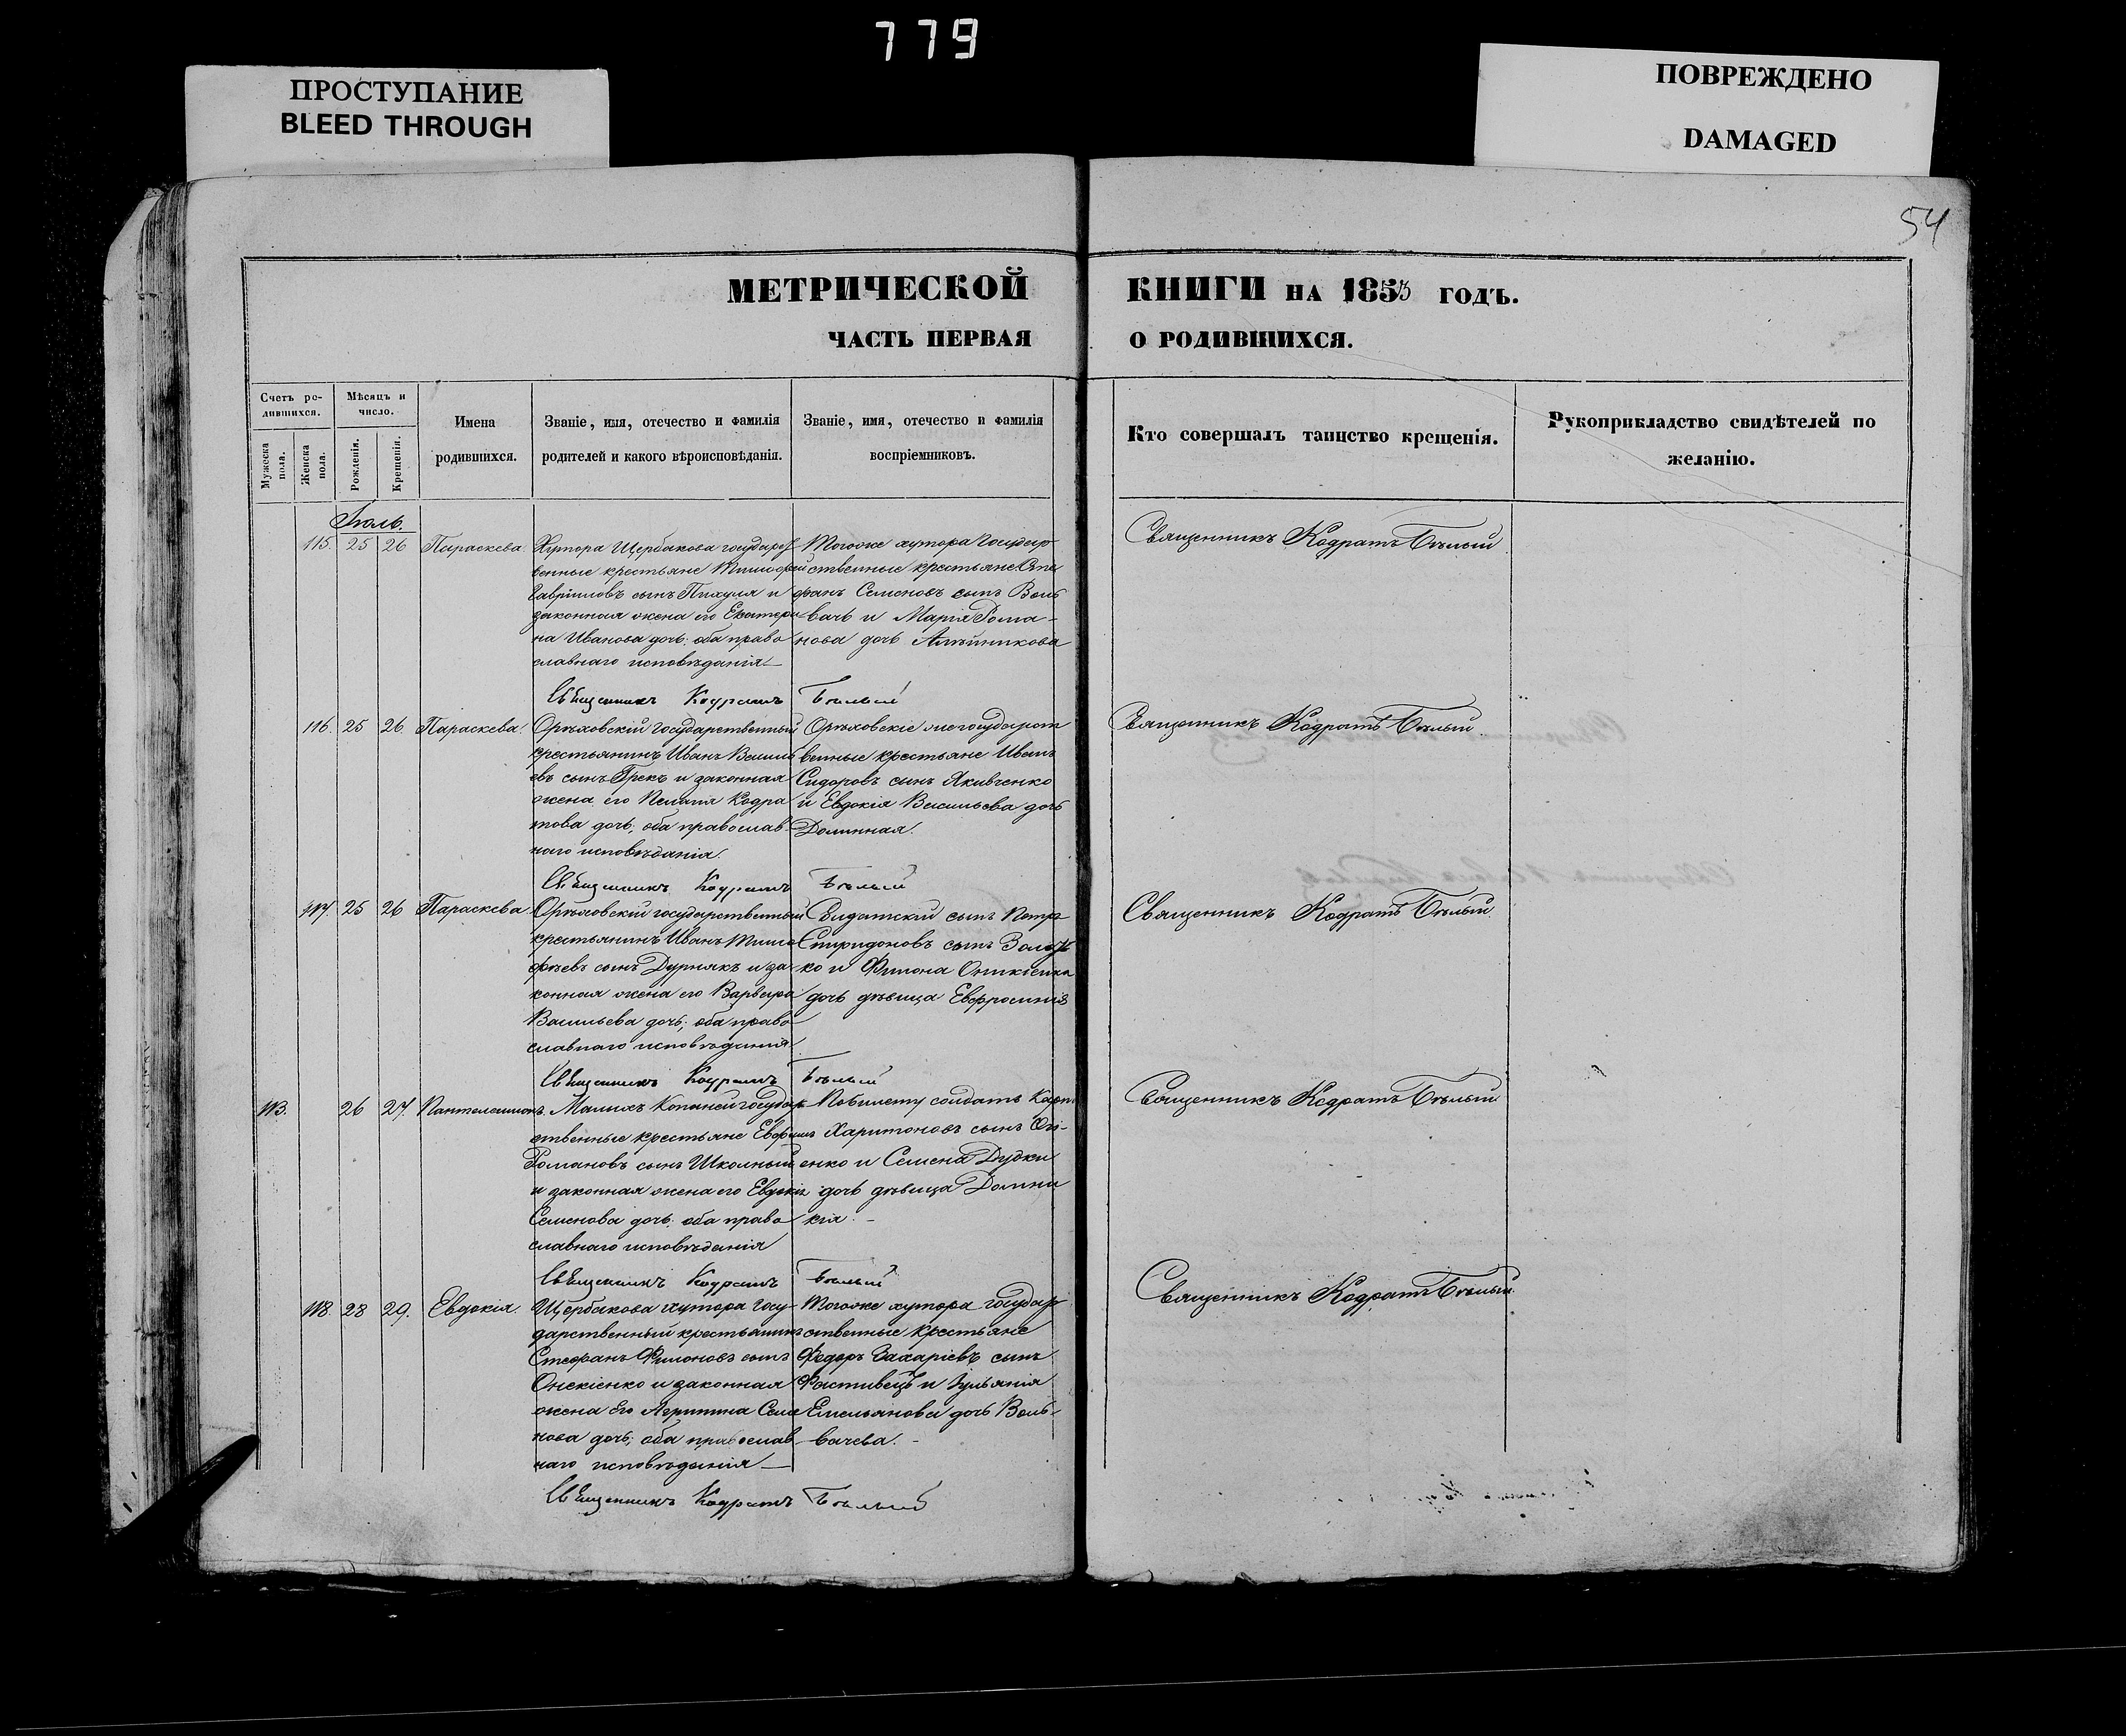 779
ПРОСТУПАНИЕ
BLEED THROUGH
ПОВРЕЖДЕНО
DAMAGED
54
МЕТРИЧЕСКОЙ
КНИГИ НА 1853 ГОДЪ.
ЧАСТЬ ПЕРВАЯ
О РОДИВШИХСЯ.
Счетъ родившихся.
Мужеска пола.
Женска пола.
Мѣсяцъ и число.
Рожденія.
Крещенія.
Имена родившихся.
Званіе, имя, отечество и фамилія
родителей и какого вѣроисповѣданія.
Званіе, имя, отечество и фамилія
воспріемниковъ.
Кто совершалъ таинство крещенія.
Рукоприкладство свидѣтелей по
желанію.
Іюль.
115. 25 26 Параскева.
Хутора Щербакова государст
венные крестьяне Тимофей
Гавріиловъ сынъ Пихуля и
законная жена его Екатери
на Иванова дочь: оба право
славнаго исповѣданія
Тогоже хутора государ
ственные крестьяне Сте
фанъ Семеновъ сынъ Вонь
вачь и Марія Рома-
нова дочь Алѣйникова
Священникъ Кодратъ Бѣлый
Священникъ Кодратъ Бѣлый
116. 25 26. Параскева.
Орѣховскій государственный
крестьянинъ Иванъ Василь
евъ сынъ Грекъ и законная
жена его Пелагія Кодра
това дочь; оба православ
наго исповѣданія.
Орѣховскіе же государст
венные крестьяне Иванъ
Сидоровъ сынъ Якивченко
и Евдокія Васильева дочь
Долинная.
Священникъ Кодратъ Бѣлый
Священникъ Кодратъ Бѣлый
117. 25 26 Параскева.
Орѣховскій государственный
крестьянинъ Иванъ Тимо
фѣевъ сынъ Дурнякъ и за
конная жена его Варвара
Васильева дочь; оба право
славнаго исповѣданія.
Солдатскій сынъ Петръ
Спиридоновъ сынъ
ко и Филона Оникіенка
дочь дѣвица Евфросинія
Священникъ Кодратъ Бѣлый
Священникъ Кодратъ Бѣлый
113. 26 27. Пантелеимонъ.
Малыхъ Копаней государ
ственные крестьяне Евфимъ
Романовъ сынъ Школный
и законная жена его Евдокія
Семенова дочь: оба право
славнаго исповѣданія
Побилету солдатъ Карпъ
Харитоновъ сынъ
енко и Семена Дудки
дочь дѣвица Домни
кія. -
Священникъ Кодратъ Бѣлый
Священникъ Кодратъ Бѣлый
118. 28 29. Евдокія.
Щербакова хутора госу-
дарственный крестьянинъ
Стефанъ Филоновъ сынъ
Онекіенко и законная
жена его Агрипина Семе
нова дочь; оба православ
наго исповѣданія
Тогоже хутора государ
ственные крестьяне
Федоръ Захаріевъ сынъ
Фастивецъ и Іульянія
Емельянова дочь Вонь-
вачева. -
Священникъ Кодратъ Бѣлый
Священникъ Кодратъ Бѣлый